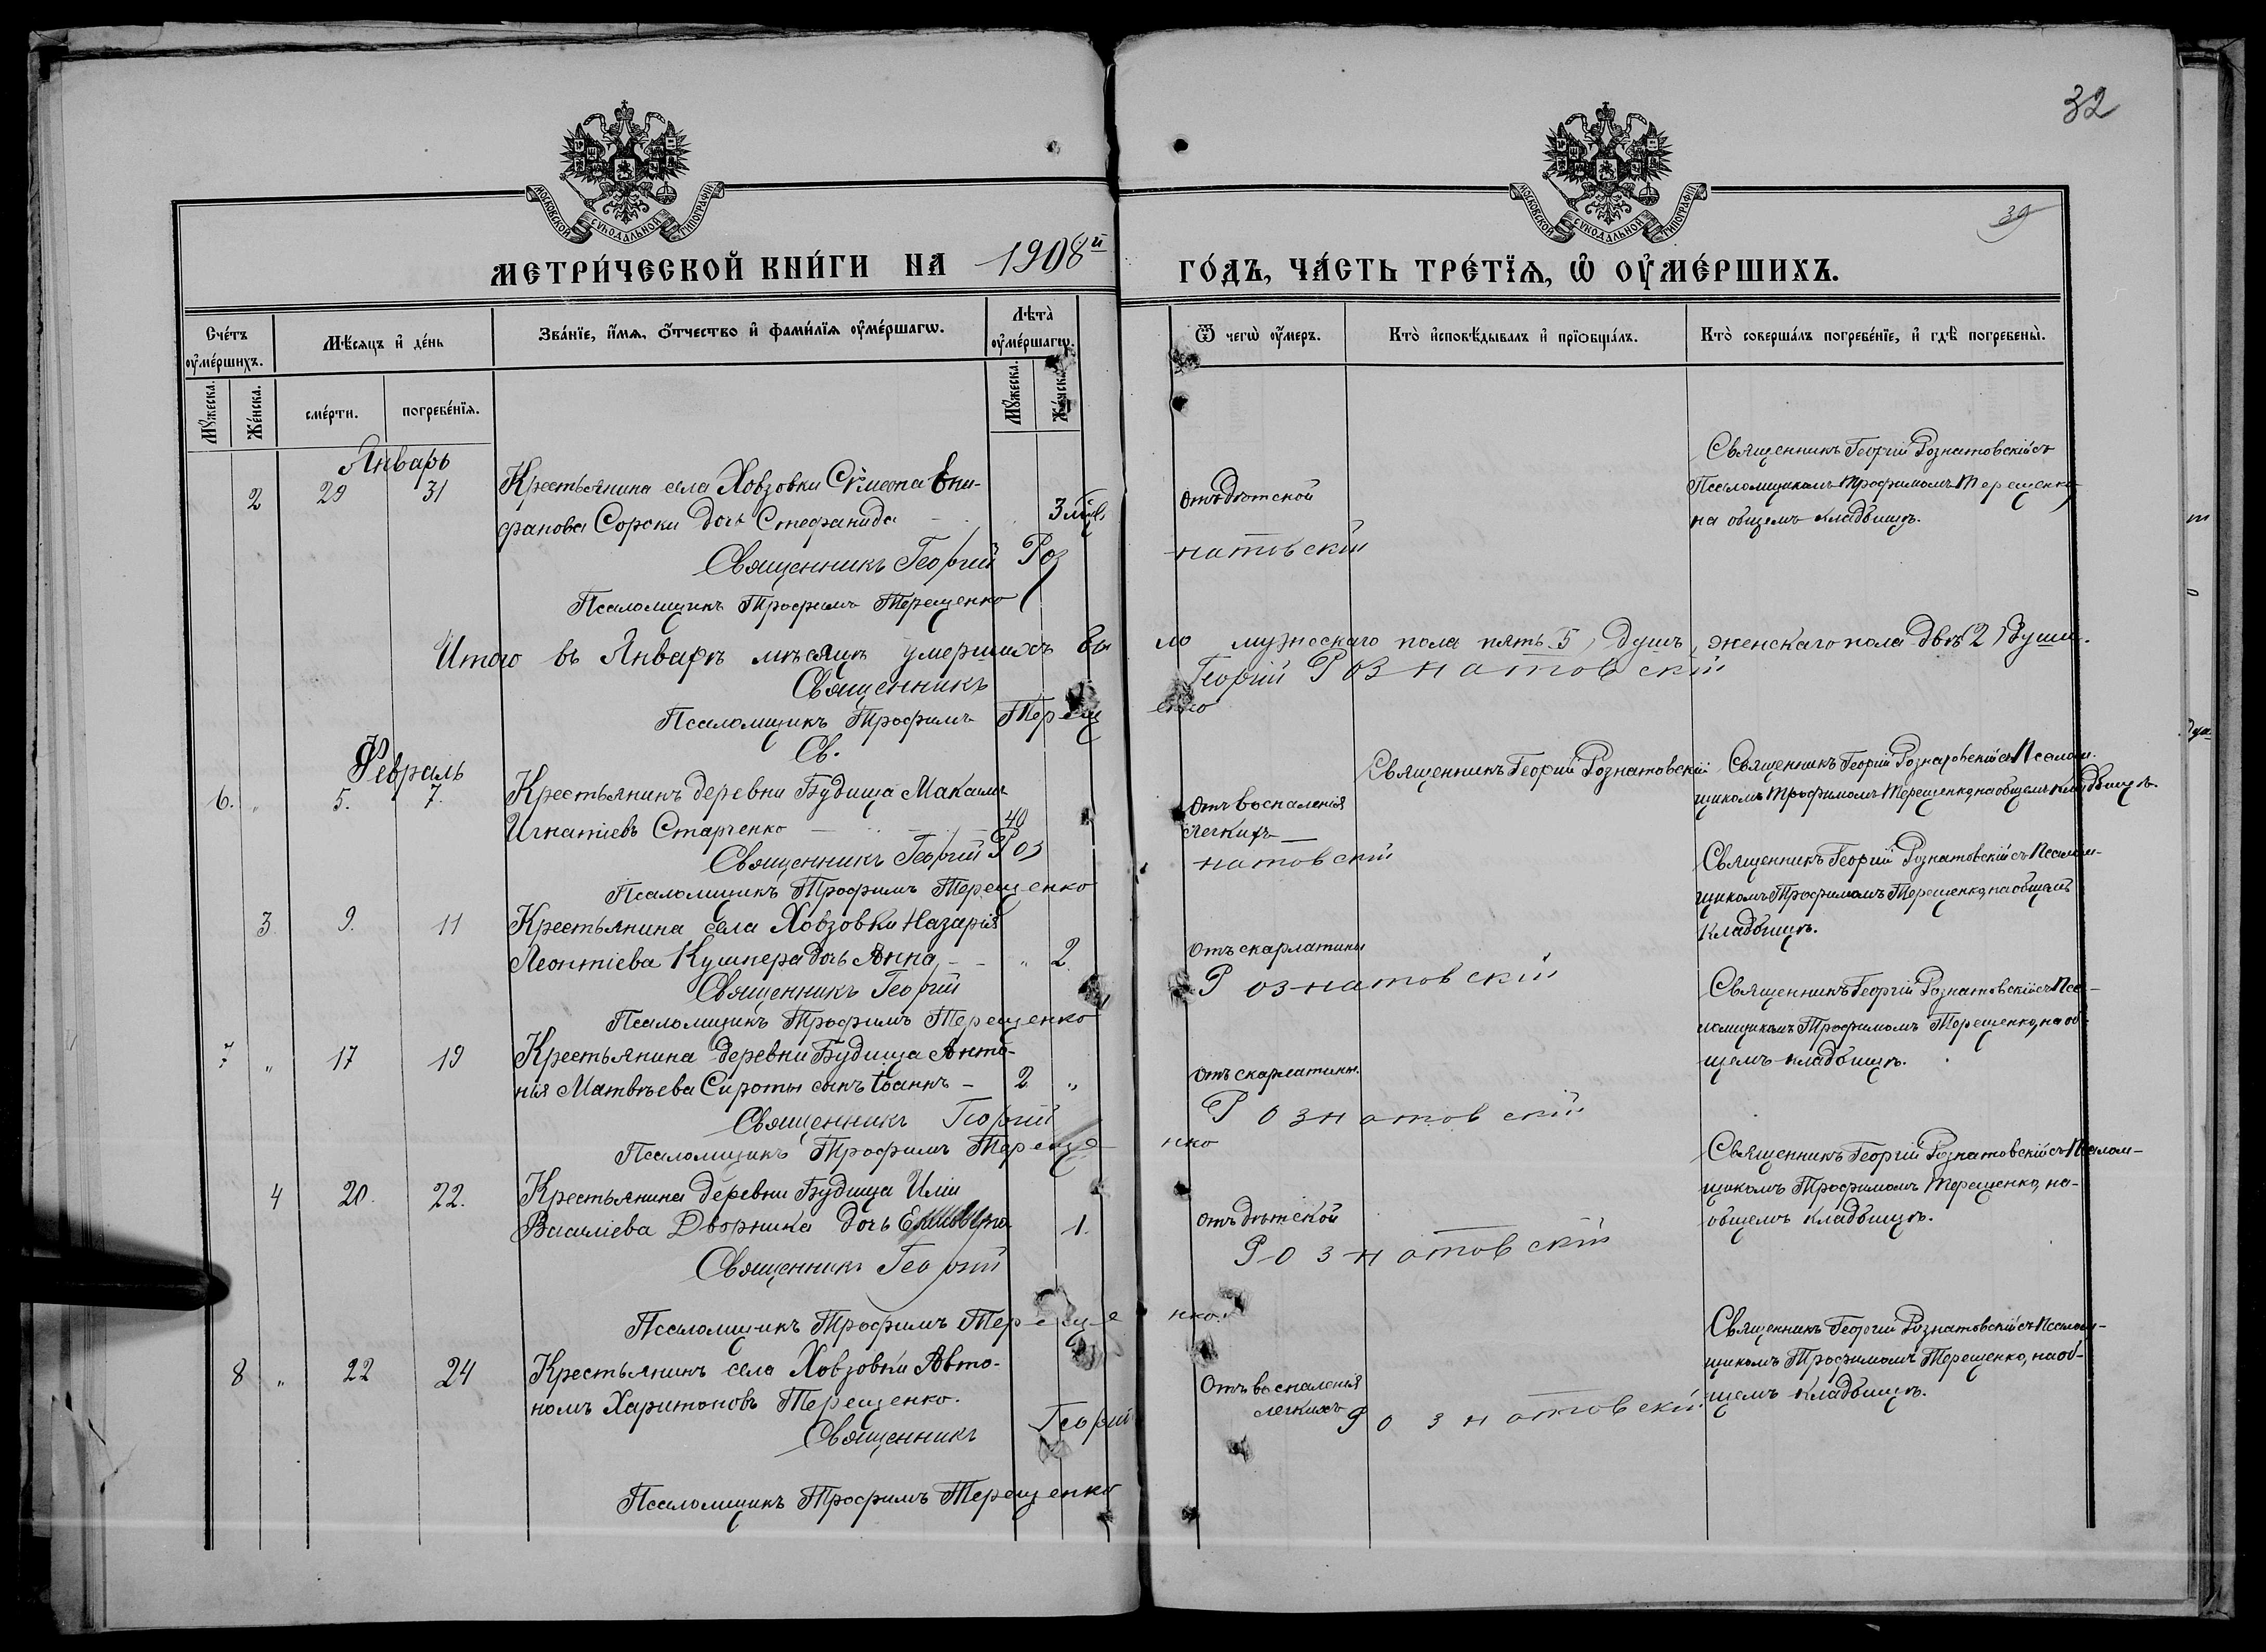 32
39
МОСКОВСКОЙ СѴНОДАЛЬНОЙ ТИПОГРАФІИ
МОСКОВСКОЙ СѴНОДАЛЬНОЙ ТИПОГРАФІИ
МЕТРИ́ЧЕСКОЙ КНИ́ГИ НА 1908й ГО́ДЪ, ЧА́СТЬ ТРЕ́ТЇѦ, Ѡ҆ ОУ҆МЕ́РШИХЪ.
Сче́тъ оу҆ме́ршихъ.
Мѣ́сяцъ и҆ де́нь
Зва́нїе, и҆́мѧ, ѻ҆́тчество и҆ фами́лїѧ оу҆ме́ршагѡ.
Лѣ́та̀ оу҆ме́ршагѡ.
Ѿ чегѡ̀ оу҆́меръ.
Кто̀ и҆сповѣ́дывалъ и҆ прїѡбща́лъ.
Кто̀ соверша́лъ погребе́нїе, и҆ гдѣ̀ погребены̀.
Мꙋ́жеска.
Же́нска.
сме́рти.
погребе́нїѧ.
Мꙋ́жеска.
Же́нска.
Январь
2 29 31 Крестьянина села Ховзовки Сѵмеона Епи-
фанова Сороки дочь Стефанида
3 мѣс.
отъ дѣтской
Священникъ Георгій Рознатовскій съ
Псаломщикомъ Трофимомъ Терещенко,
на общемъ кладбищѣ.
Священникъ Георгій Рознатовскій
Псаломщикъ Трофимъ Терещенко
Итого въ Январѣ мѣсяцѣ умершихъ было мужескаго пола пять 5) душъ, женскаго пола двѣ (2) души.
Священникъ Георгій Рознатовскій
Псаломщикъ Трофимъ Терещенко
Св.
Февраль
6. " 5. 7. Крестьянинъ деревни Будища Максимъ
Игнатіевъ Старченко 40
отъ воспаленія
легкихъ
Священникъ Георгій Рознатовскій
Священникъ Георгій Рознатовскій съ Псалом-
щикомъ Трофимомъ Терещенко, на общемъ кладбищѣ.
Священникъ Георгій Рознатовскій
Псаломщикъ Трофимъ Терещенко
3 9. 11 Крестьянина села Ховзовки Назарія
Леонтіева Кушнера дочь Анна, " 2.
отъ скарлатины
Священникъ Георгій Рознатовскій съ Псалом-
щикомъ Трофимомъ Терещенко, на общемъ
кладбищѣ.
Священникъ Георгій Рознатовскій
Псаломщикъ Трофимъ Терещенко
7 " 17 19 Крестьянина деревни Будища Анто-
нія Матвѣева Сироты сынъ Іоаннъ - 2 "
отъ скарлатины.
Священникъ Георгій Рознатовскій съ Пса-
ломщикомъ Трофимомъ Терещенко, на об-
щемъ кладбищѣ.
Священникъ Георгій Рознатовскій
Псаломщикъ Трофимъ Терещенко
4 20. 22. Крестьянина деревни Будища Иліи
Василіева Дворника дочь 1.
отъ дѣтской
Священникъ Георгій Рознатовскій съ Псалом-
щикомъ Трофимомъ Терещенко, на-
общемъ кладбищѣ.
Священникъ Георгій Рознатовскій
Псаломщикъ Трофимъ Терещенко.
8 " 22 24 Крестьянинъ села Ховзовки Авто-
номъ Харитоновъ Терещенко.
Отъ воспаленія
легкихъ
Священникъ Георгій Рознатовскій съ Псалом-
щикомъ Трофимомъ Терещенко, на об-
щемъ кладбищѣ.
Священникъ Георгій Рознатовскій
Псаломщикъ Трофимъ Терещенко